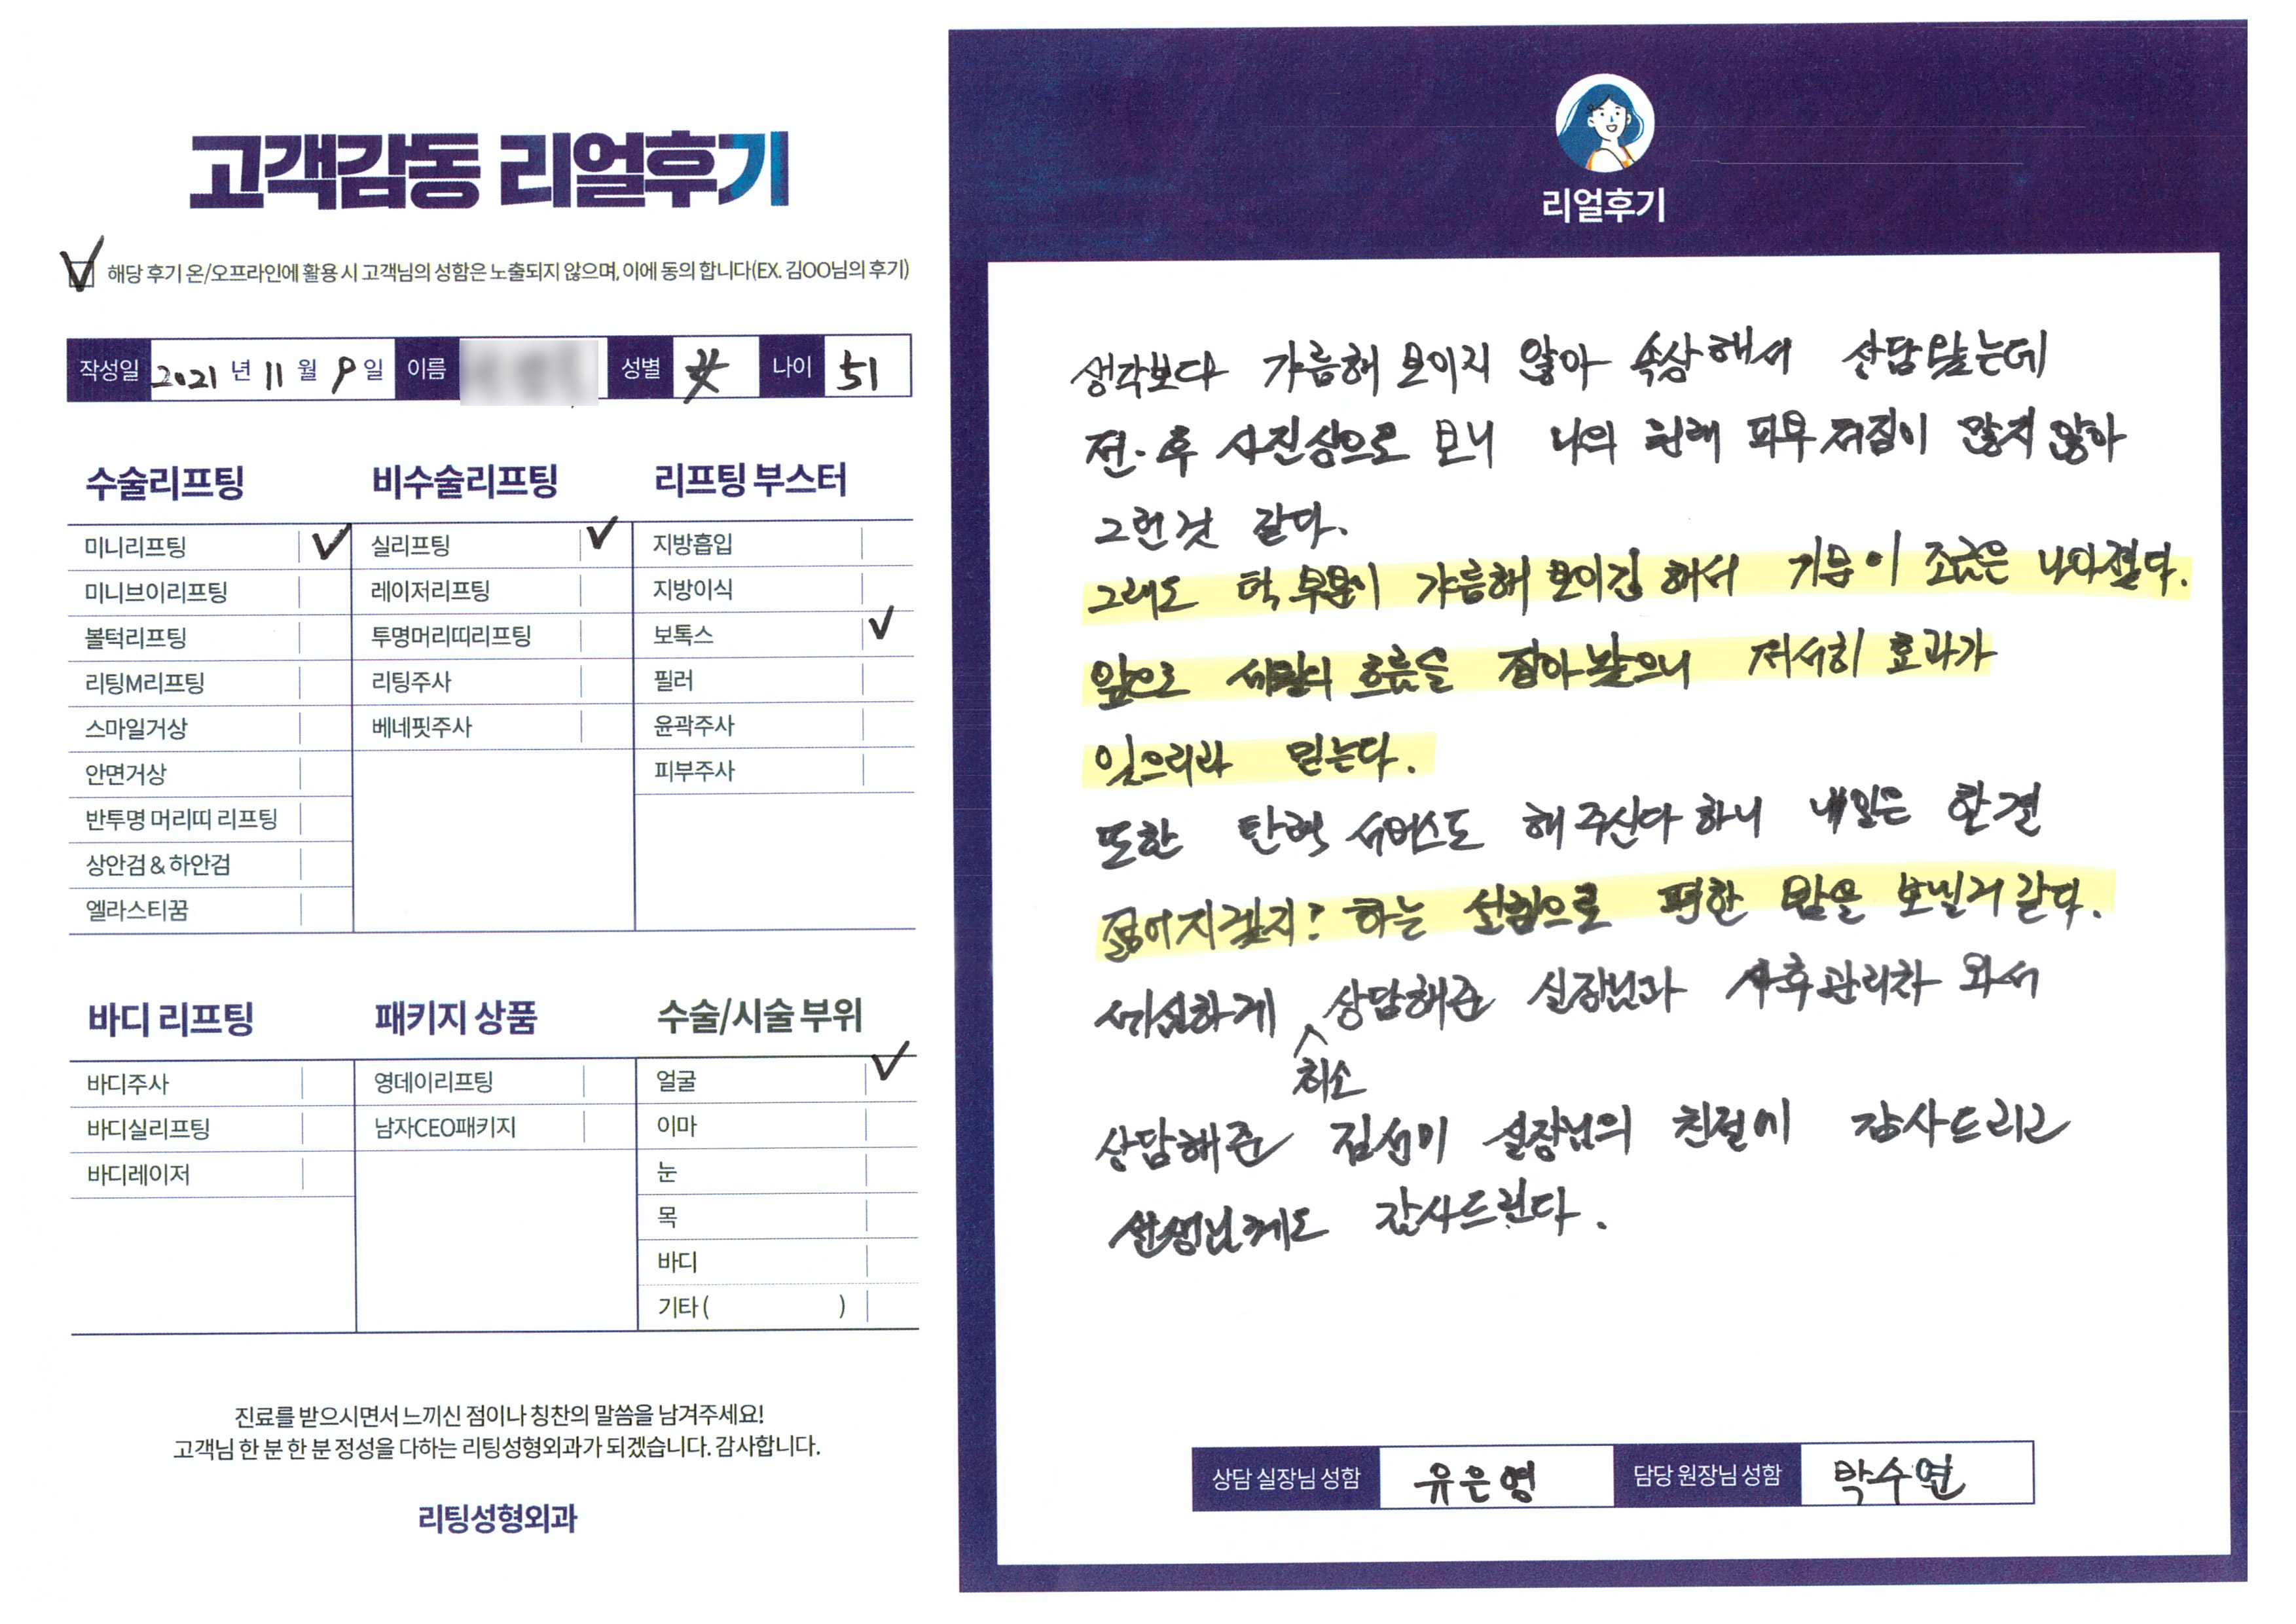 고객감동 리얼후기
해당 후기 온/오프라인에 활용 시 고객님의 성함은 노출되지 않으며, 이에 동의 합니다(EX. 김OO님의 후기)
작성일 2021 년 11 월 9 일 이름 성별 女 나이 51
수술리프팅
미니리프팅
미니브이리프팅
볼턱리프팅
리팅M리프팅
스마일거상
안면거상
반투명 머리띠 리프팅
상안검 & 하안검
엘라스티꿈
비수술리프팅
실리프팅
레이저리프팅
투명머리띠리프팅
리팅주사
베네핏주사
리프팅 부스터
지방흡입
지방이식
보톡스
필러
윤곽주사
피부주사
바디 리프팅
바디주사
바디실리프팅
바디레이저
패키지 상품
영데이리프팅
남자CEO패키지
수술/시술 부위
얼굴
이마
눈
목
바디
기타 ( )
진료를 받으시면서 느끼신 점이나 칭찬의 말씀을 남겨주세요!
고객님 한 분 한 분 정성을 다하는 리팅성형외과가 되겠습니다. 감사합니다.
리팅성형외과
리얼후기
생각보다 갸름해 보이지 않아 속상해서 상담왔는데
전·후 사진상으로 보니 나의 원래 피부 처짐이 많지 않아
그런것 같다.
그래도 턱 부분이 갸름해 보이긴 해서 기분이 조금은 나아졌다.
앞으로 세월의 흐름을 잡아놨으니 서서히 효과가
있으리라 믿는다.
또한 탄력 서비스도 해 주신다 하니 내일은 한결
젊어지겠지? 하는 설렘으로 편한 밤을 보낼거 같다.
세심하게 상담해준 실장님과 사후관리차 와서
최소
상담해준 김선미 실장님의 친절에 감사드리고
선생님께도 감사드린다.
상담 실장님 성함 유은영 담당 원장님 성함 박수연